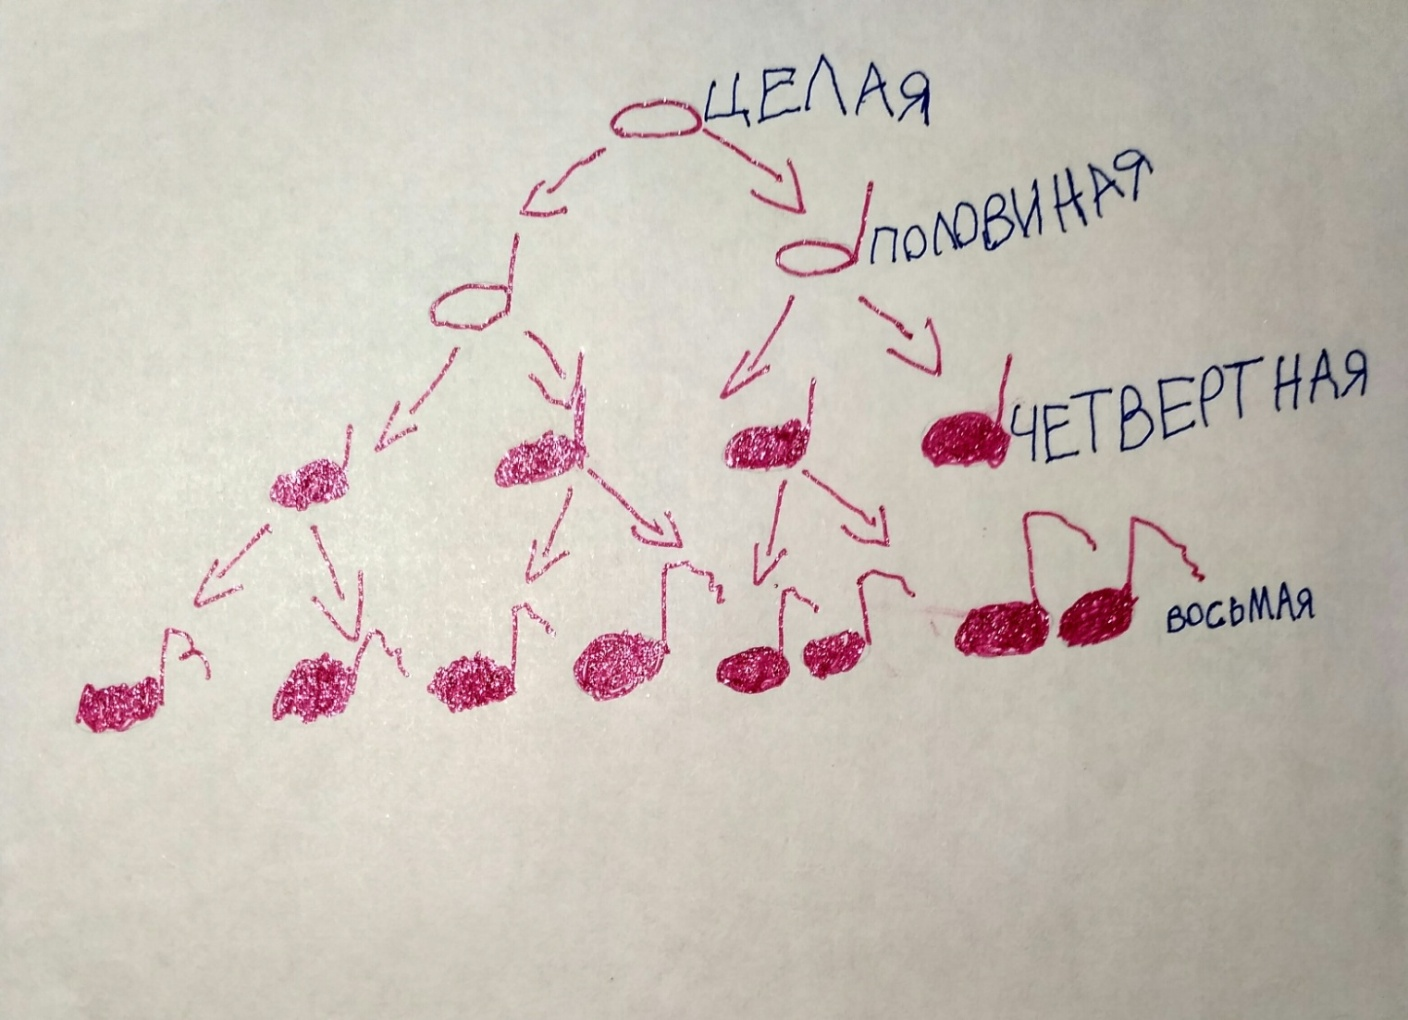 ЦЕЛАЯ
ПОЛОВИНАЯ
ЧЕТВЕРТНАЯ
ВОСЬМАЯ